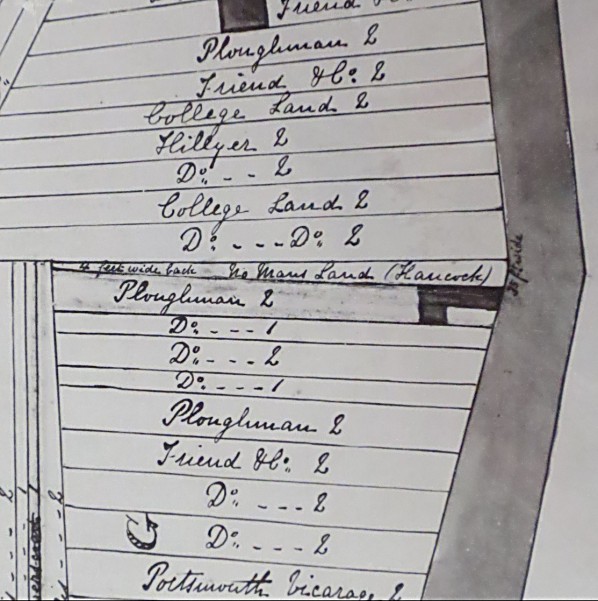 Friend
Ploughman 2
Friend & Co. 2
College Land 2
Hillyer 2
Do. - - 2
College Land 2
Do. - - - Do. 2
4 feet wide back No Mans Land (Hancock)
Ploughman 2
Do. - - - 1
Do. - - - 2
Do. - - - 1
Ploughman 2
Friend & Co. 2
Do. - - - 2
Do. - - - 2
Portsmouth Vicarage 2